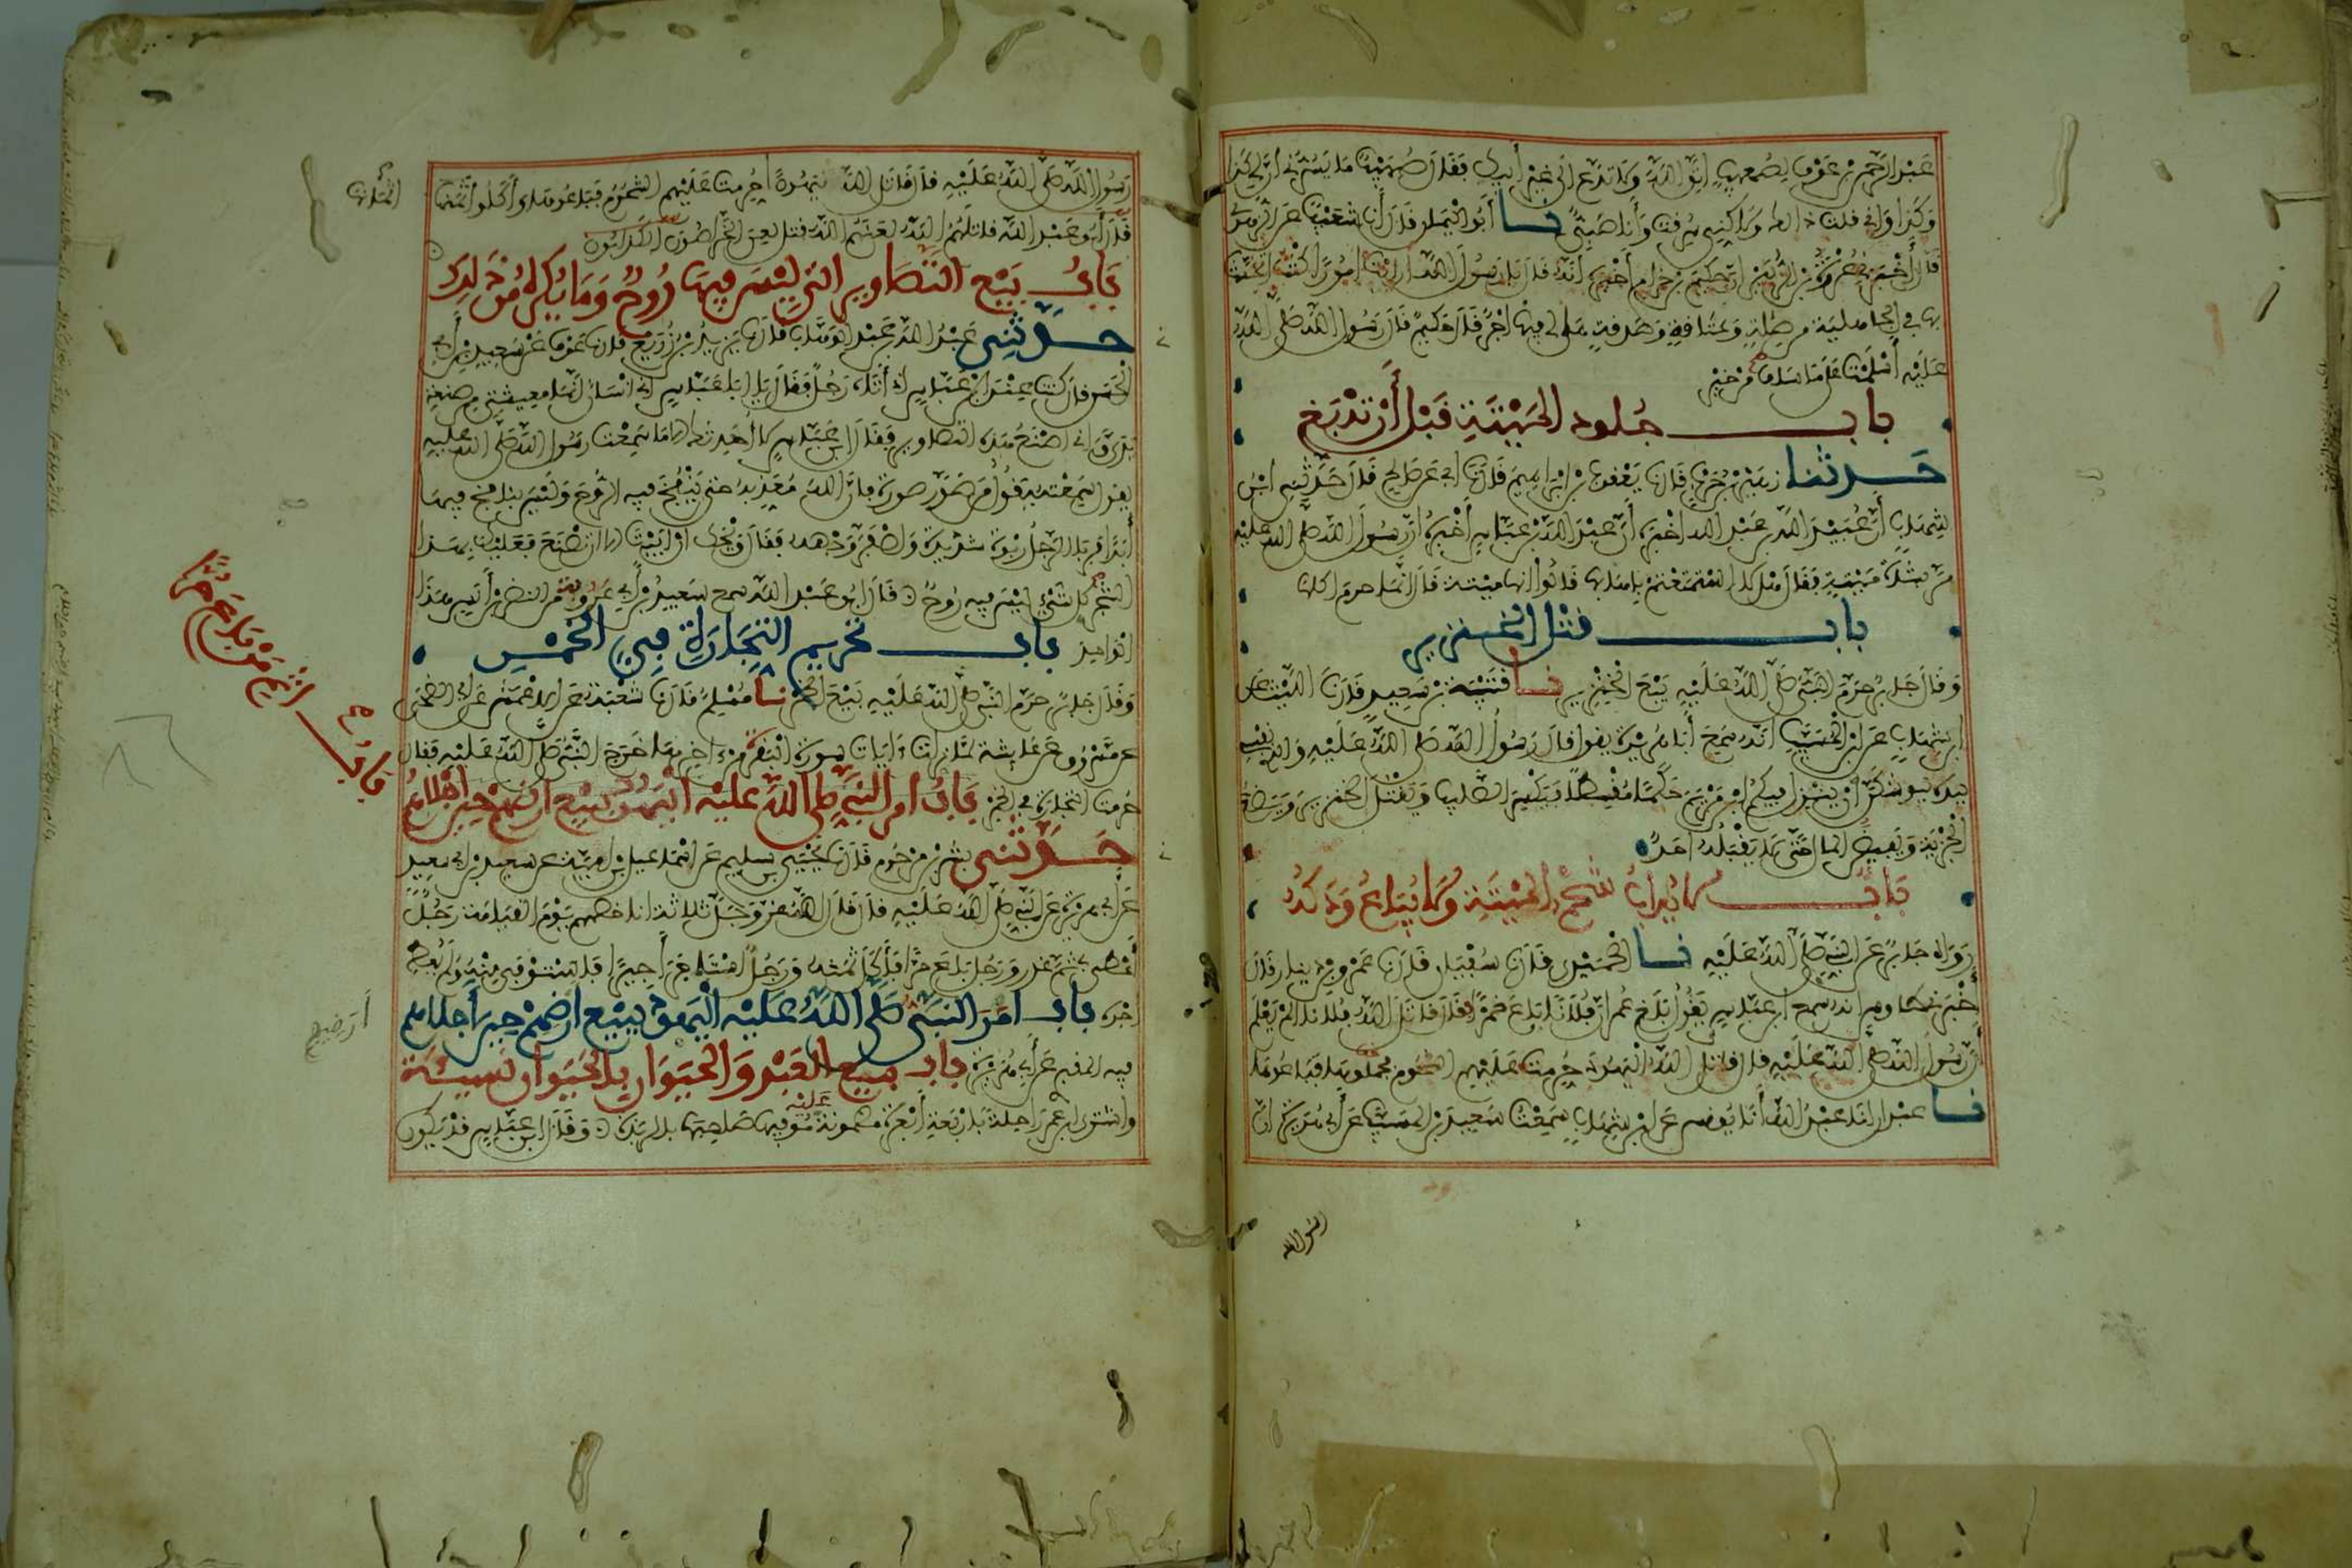 عبد الرحمن بن عوف لصهيب اتق الله ولا تدع الى غير أبيك فقال صهيب ما يسرني أن لي كذا
وكذا واني قلت ذلك ولاكني سرقت وأنا صبي نا أبو اليمان قال أنا شعيب عن الزهري
قال أخبرني عروة بن الزبير ان حكيم بن حزام أخبره أنه قال يا رسول الله أرأيت امورا كنت اتحنث
بها في الجاهلية من صلة وعتاقة وصدقة هل لي فيها اجر قال حكيم قال رسول الله صلى الله
عليه أسلمت على ما سلف من خير
باب جلود الميتة قبل أن تدبغ
حدثنا زهير بن حرب قال نا يعقوب بن ابراهيم قال نا ابي عن صالح قال حدثني ابن
شهاب أن عبيد الله بن عبد الله اخبره أن عبد الله بن عباس أخبره أن رسول الله صلى الله عليه
مر بشاة ميتة فقال هلا استمتعتم بإهابها قالوا انها ميتة قال انما حرم اكلها
باب قتل الخنزير
وقال جابر حرم النبي صلى الله عليه بيع الخنزير نا قتيبة بن سعيد قال نا الليث عن
ابن شهاب عن ابن المسيب انه سمع أبا هريرة يقول قال رسول الله صلى الله عليه والذي نفسي
بيده ليوشكن أن ينزل فيكم ابن مريم حكما مقسطا فيكسر الصليب ويقتل الخنزير ويضع
الجزية ويفيض المال حتى لا يقبله احد
باب لا يذاب شحم الميتة ولا يباع ودكه
رواه جابر عن النبي صلى الله عليه نا الحميدي قال نا سفيان قال نا عمرو بن دينار قال
أخبرني طاوس انه سمع ابن عباس يقول بلغ عمر ان فلانا باع خمرا فقال قاتل الله فلانا الم يعلم
أن رسول الله صلى الله عليه قال قاتل الله اليهود حرمت عليهم الشحوم فجملوها فباعوها
نا عبدان انا عبد الله أنا يونس عن ابن شهاب سمعت سعيد بن المسيب عن أبي هريرة ان
رسول الله
رسول الله صلى الله عليه قال قاتل الله يهودا حرمت عليهم الشحوم فباعوها وأكلوا أثمنها
قال أبو عبد الله قاتلهم الله لعنهم الله قتل لعن الخراصون الكذابون
باب بيع التصاوير التي ليس فيها روح وما يكره من ذلك
حدثني عبد الله بن عبد الوهاب قال نا يزيد بن زريع قال نا عوف عن سعيد بن أبي
الحسن قال كنت عند ابن عباس إذ أتاه رجل فقال يا با عباس إني انسان انما معيشتي من صنعة
يدي واني اصنع هذه التصاوير فقال ابن عباس لا أحدثك الا ما سمعت رسول الله صلى الله عليه
يقول سمعته يقول من صور صورة فان الله معذبه حتى ينفخ فيه الروح وليس بنافخ فيها
أبدا فربا الرجل ربوة شديدة واصفر وجهه فقال ويحك ان ابيت الا ان تصنع فعليك بهذا
الشجر كل شيء ليس فيه روح قال ابو عبد الله سمع سعيد بن أبي عروبة من النضر بن أنس هذا
الواحد باب تحريم التجارة في الخمر
وقال جابر حرم النبي صلى الله عليه بيع الخمر نا مسلم قال نا شعبة عن الاعمش عن ابي الضحى
عن مسروق عن عايشة لما نزلت ءايات سورة البقرة من ءاخرها خرج النبي صلى الله عليه فقال
حرمت التجارة في الخمر باب أمر النبي صلى الله عليه اليهود ببيع ارضهم حين أجلاهم
باب اثم من باع حرا
حدثني بشر بن مرحوم قال نا يحيى بن سليم عن اسماعيل بن امية عن سعيد بن ابي سعيد
عن ابي هريرة عن النبي صلى الله عليه قال قال الله عز وجل ثلاثة انا خصمهم يوم القيامة رجل
أعطى بي ثم غدر ورجل باع حرا فأكل ثمنه ورجل استاجر أجيرا فاستوفى منه ولم يعطه
أجره باب أمر النبي صلى الله عليه اليهود ببيع ارضهم حين أجلاهم
فيه المقبري عن أبي هريرة باب بيع العبد والحيوان بالحيوان نسيئة
واشترى ابن عمر راحلة بأربعة أبعرة مضمونة عليه يوفيها صاحبها بالربذة وقال ابن عباس قد يكون